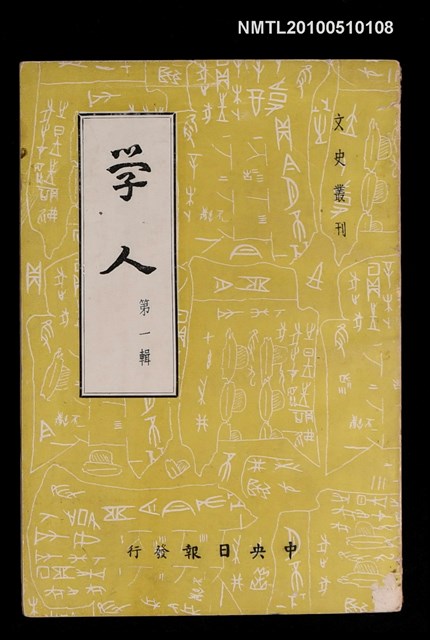 NMTL20100510108
文史叢刊
学人
第一輯
中央日報發行